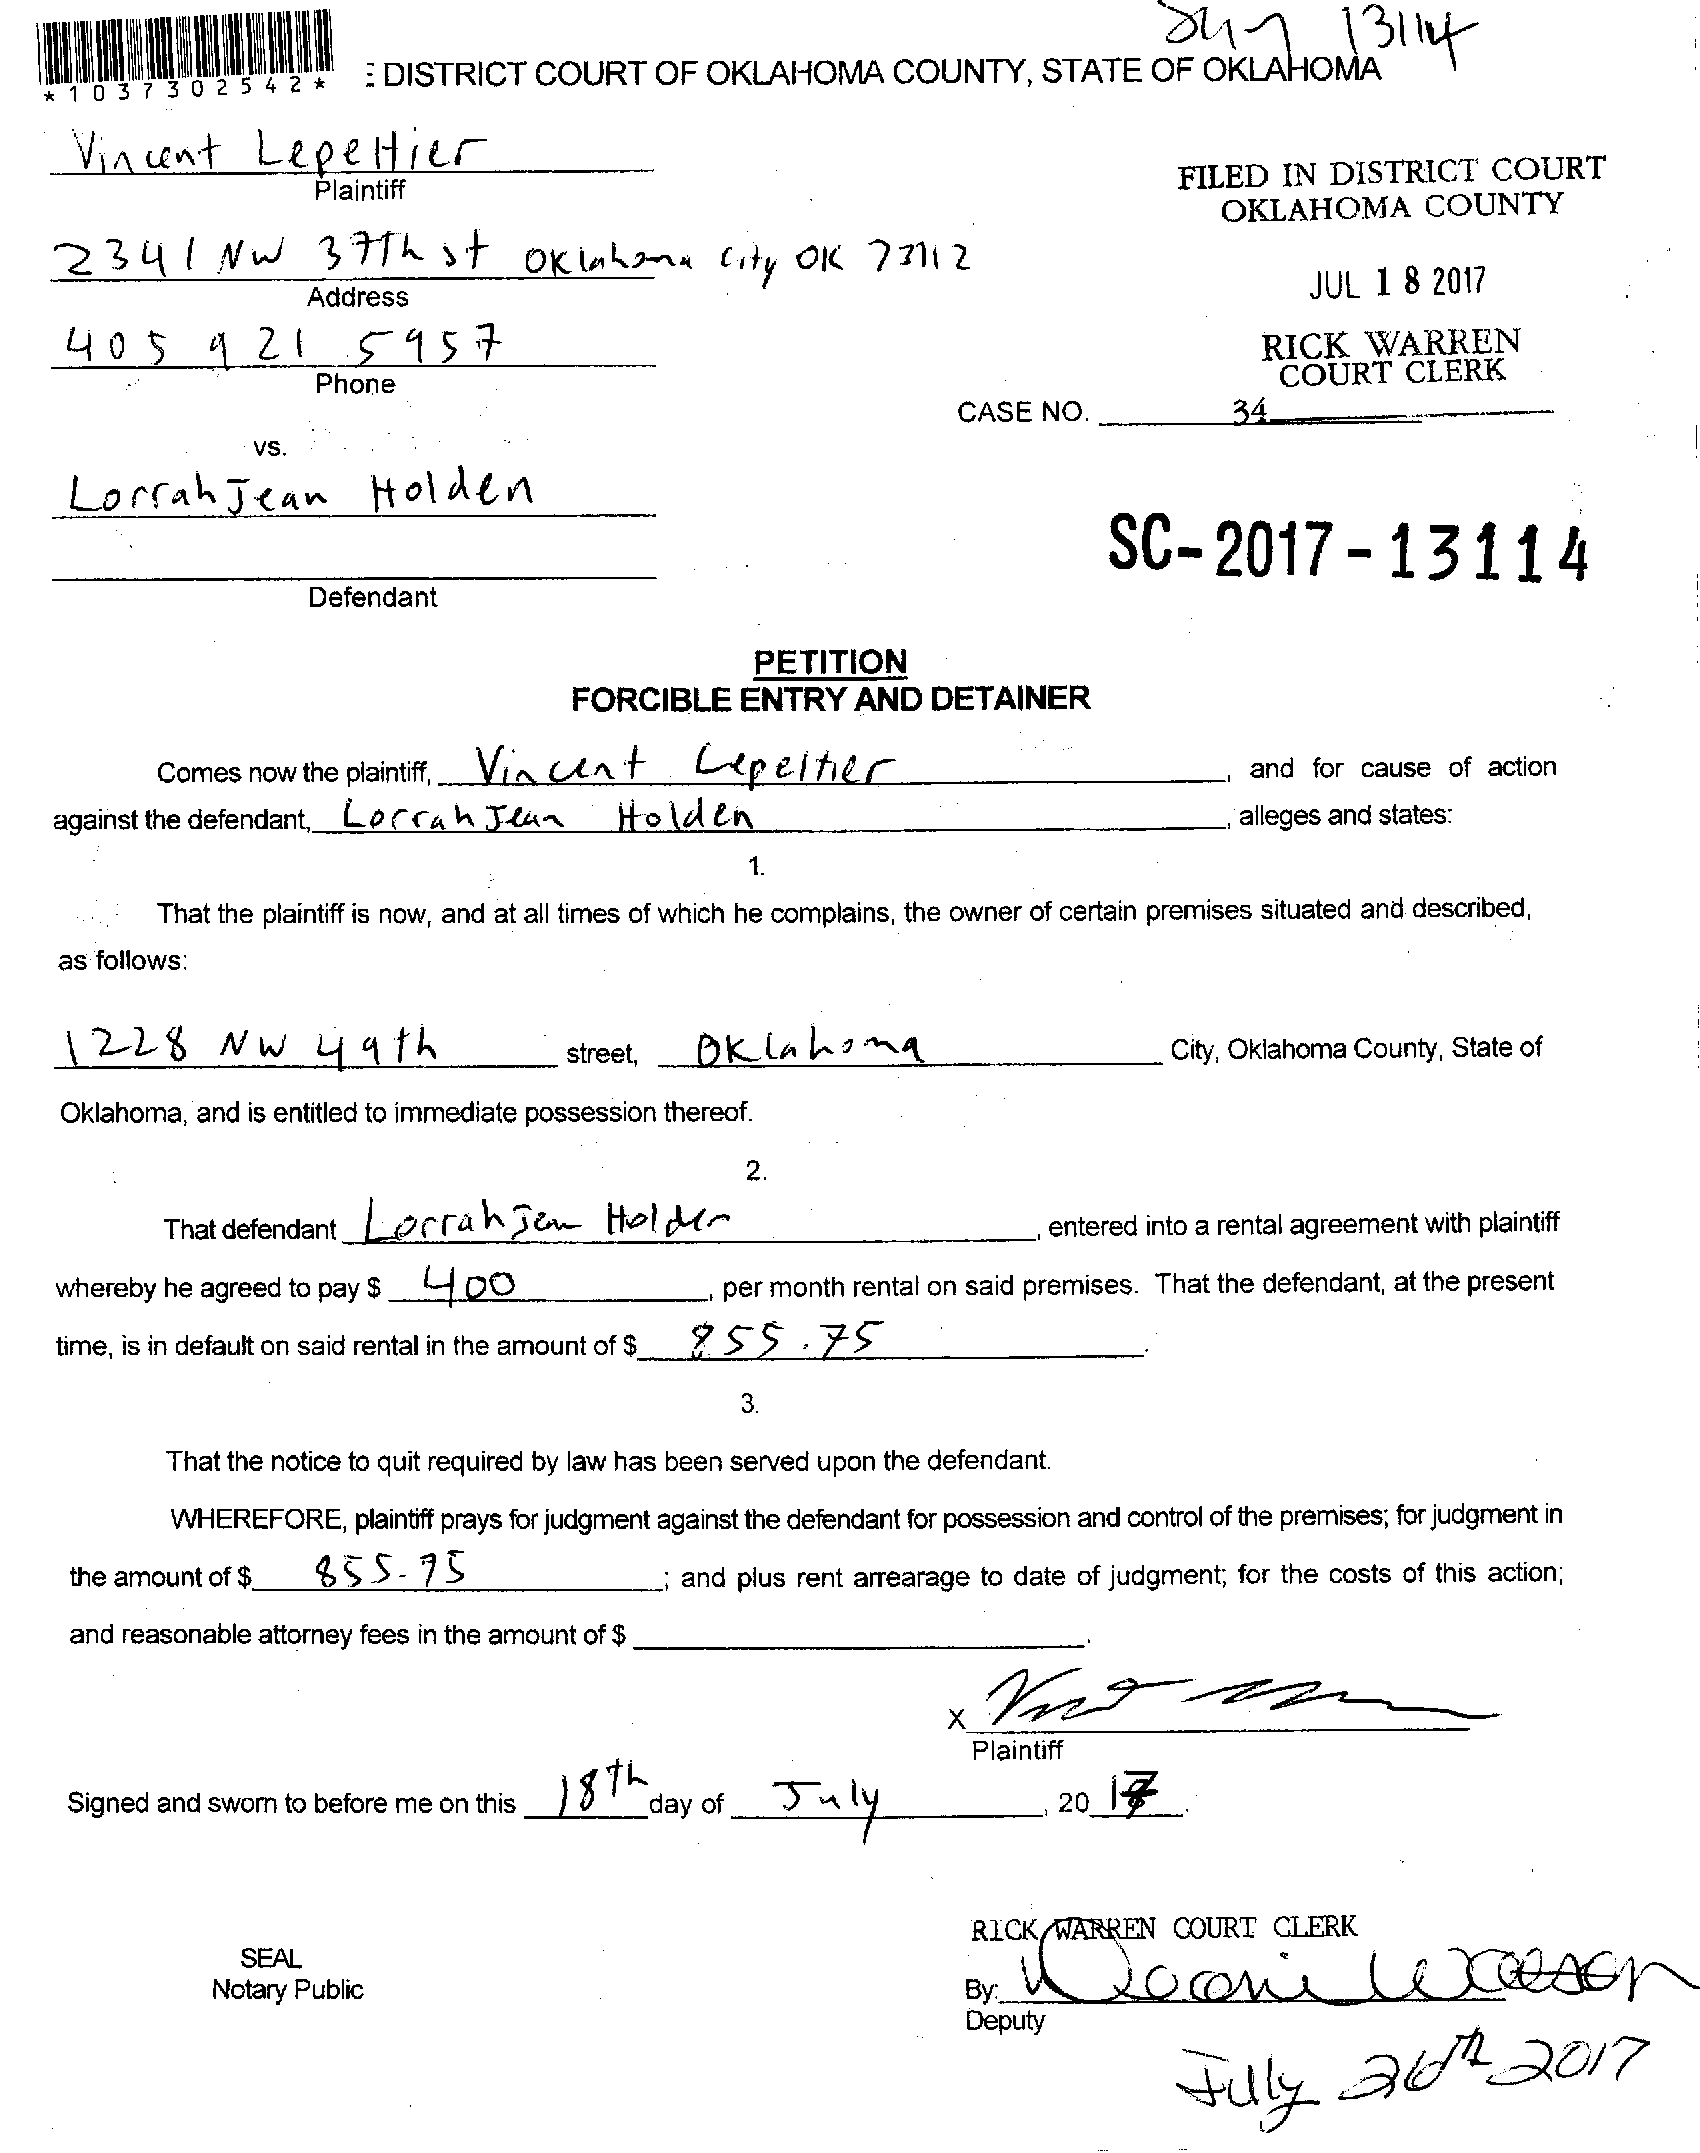 13114
*1037302542*
DISTRICT COURT OF OKLAHOMA COUNTY, STATE OF OKLAHOMA
Vincent Lepeltier
Plaintiff
2341 NW 37Th st Oklahoma City OK 73112
Address
405 921 5957
Phone
FILED IN DISTRICT COURT
OKLAHOMA COUNTY
JUL 18 2017
RICK WARREN
COURT CLERK
CASE NO. 34
vs.
Lorrah Jean Holden
Defendant
SC-2017-13114
PETITION
FORCIBLE ENTRY AND DETAINER
Comes now the plaintiff, Vincent Lepeltier, and for cause of action
against the defendant, Lorrah Jean Holden, alleges and states:
1.
That the plaintiff is now, and at all times of which he complains, the owner of certain premises situated and described,
as follows:
1228 NW 49th street, Oklahoma City, Oklahoma County, State of
Oklahoma, and is entitled to immediate possession thereof.
2.
That defendant Lorrah Jean Holden, entered into a rental agreement with plaintiff
whereby he agreed to pay $ 400, per month rental on said premises. That the defendant, at the present
time, is in default on said rental in the amount of $ 855.75.
3.
That the notice to quit required by law has been served upon the defendant.
WHEREFORE, plaintiff prays for judgment against the defendant for possession and control of the premises; for judgment in
the amount of $ 855.75; and plus rent arrearage to date of judgment; for the costs of this action;
and reasonable attorney fees in the amount of $ .
X
Plaintiff
Signed and sworn to before me on this 18th day of July, 2017.
RICK WARREN COURT CLERK
SEAL
Notary Public
By:
Deputy
July 26th 2017